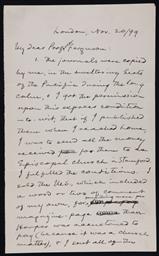 London, Nov. 20/99
My dear Prof. Ferguson:
1. The journals were copied
by me, in the sweltering seats
of the Pacific during the long
calm, & I got the permission
upon this express condition
— to wit, that if I published
them when I reached home,
I was to send all the money
received to the
Episcopal church in Stamford.
I fulfilled the conditions. I
sold the MS. which included
a word or two of comment
of my own, for
magazine-page than
Harper was accustomed to
pay (because it was a church
matter), & I sent all of the